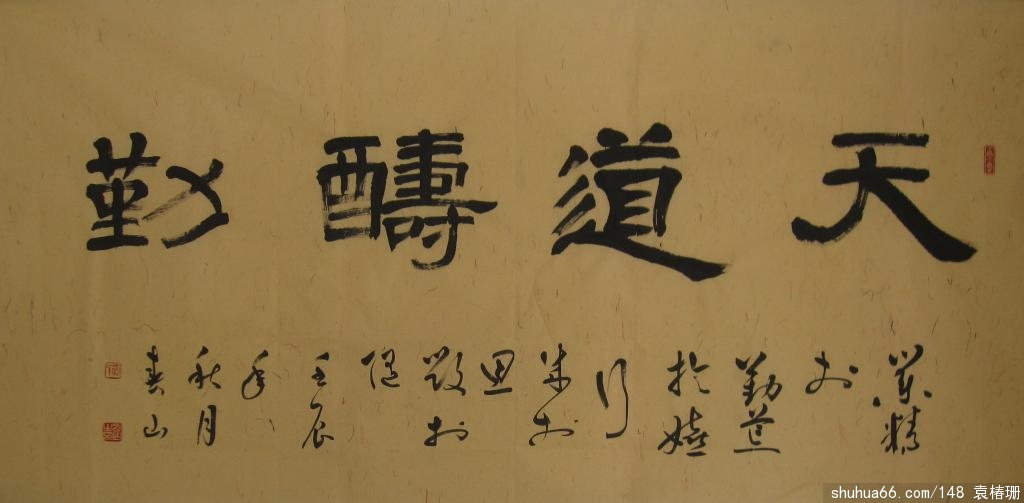 天道醻勤
業精
於
勤荒
於嬉
行
成於
思
毀於
随
壬辰
年
秋月
春山
shuhua66.com/148 袁椿珊